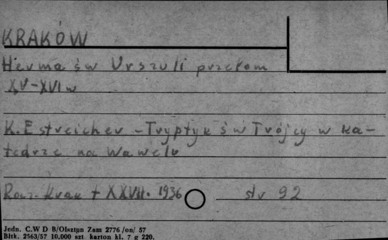 KRAKÓW
Herma św Urszuli przełom
XV-XVI w
K. Estreicher - Tryptyk św Trójcy w ka-
tedrze na Wawelu
Rocz. Krak t XXVII. 1936 str 92
Jedn. C.W D B/Olsztyn Zam 2776/on/ 57
Bltk. 2563/57 10.000 szt karton kl. 7 g 220.